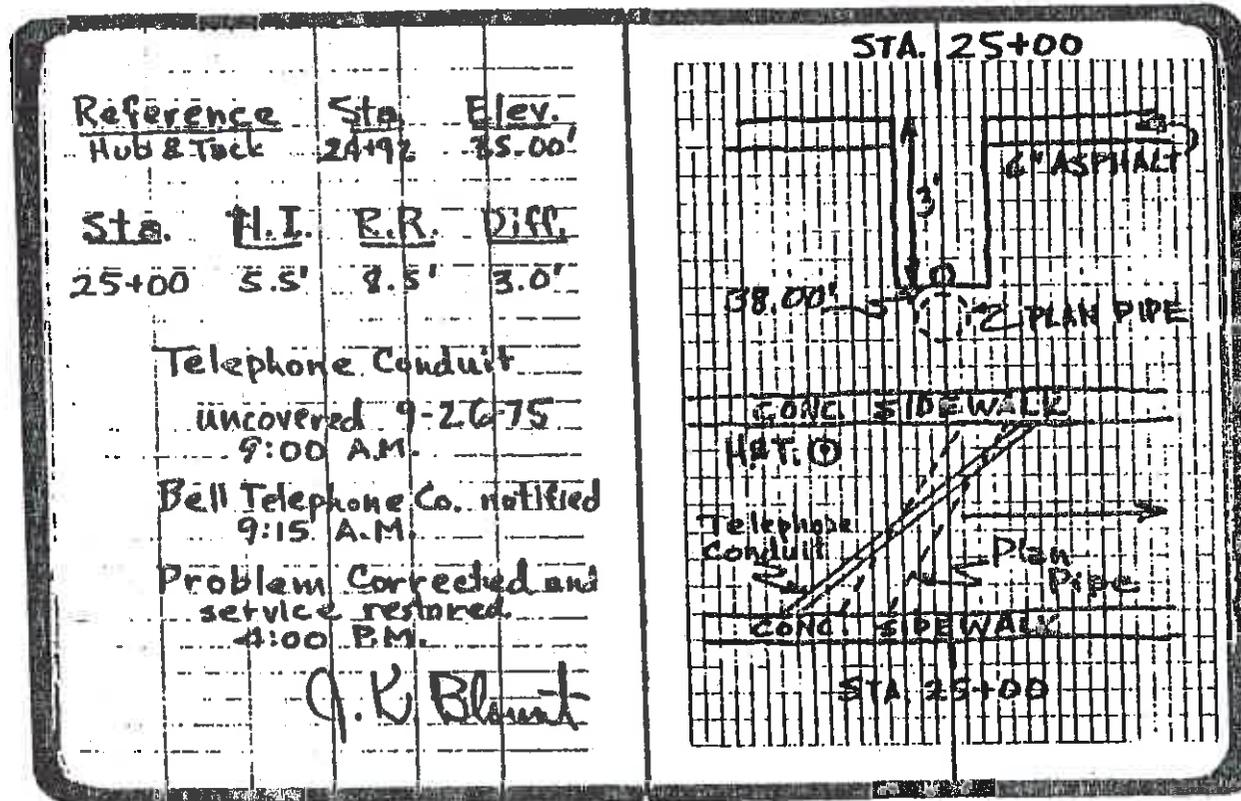 Reference Sta. Elev.
Hub & Tack 24+92 35.00'
Sta. H.I. R.R. Diff.
25+00 5.5' 8.5' 3.0'
Telephone Conduit
uncovered 9-26-75
9:00 A.M.
Bell Telephone Co. notified
9:15 A.M.
Problem Corrected and
service restored
4:00 P.M.
J. K. Blount
STA. 25+00
6" ASPHALT
3'
38.00'
PLAN PIPE
CONC. SIDEWALK
H&T.
Telephone
conduit
Plan
Pipe
CONC. SIDEWALK
STA 25+00